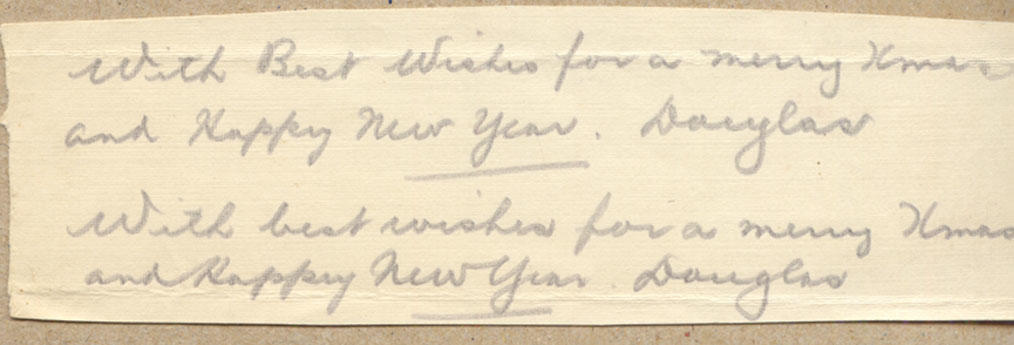 With Best Wishes for a merry Xmas
and Happy New Year. Douglas
With best wishes for a merry Xmas
and Happy New Year. Douglas